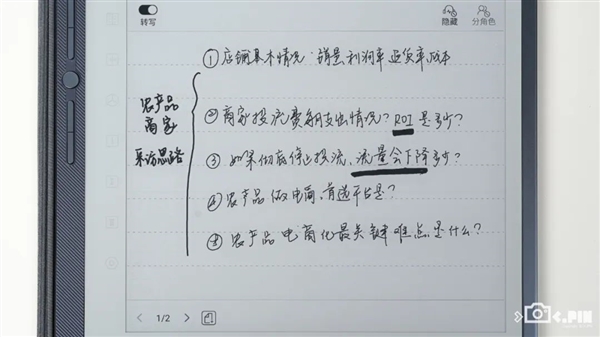 转写
隐藏
分角色
农产品
商家
采访思路
①店铺基本情况:销量、利润率、退货率、成本
②商家投流费用支出情况?ROI是多少?
③如果彻底停止投流,流量会下降多少?
④农产品做电商,首选平台是?
⑤农产品电商化最关键难点是什么?
1/2
C.PIN